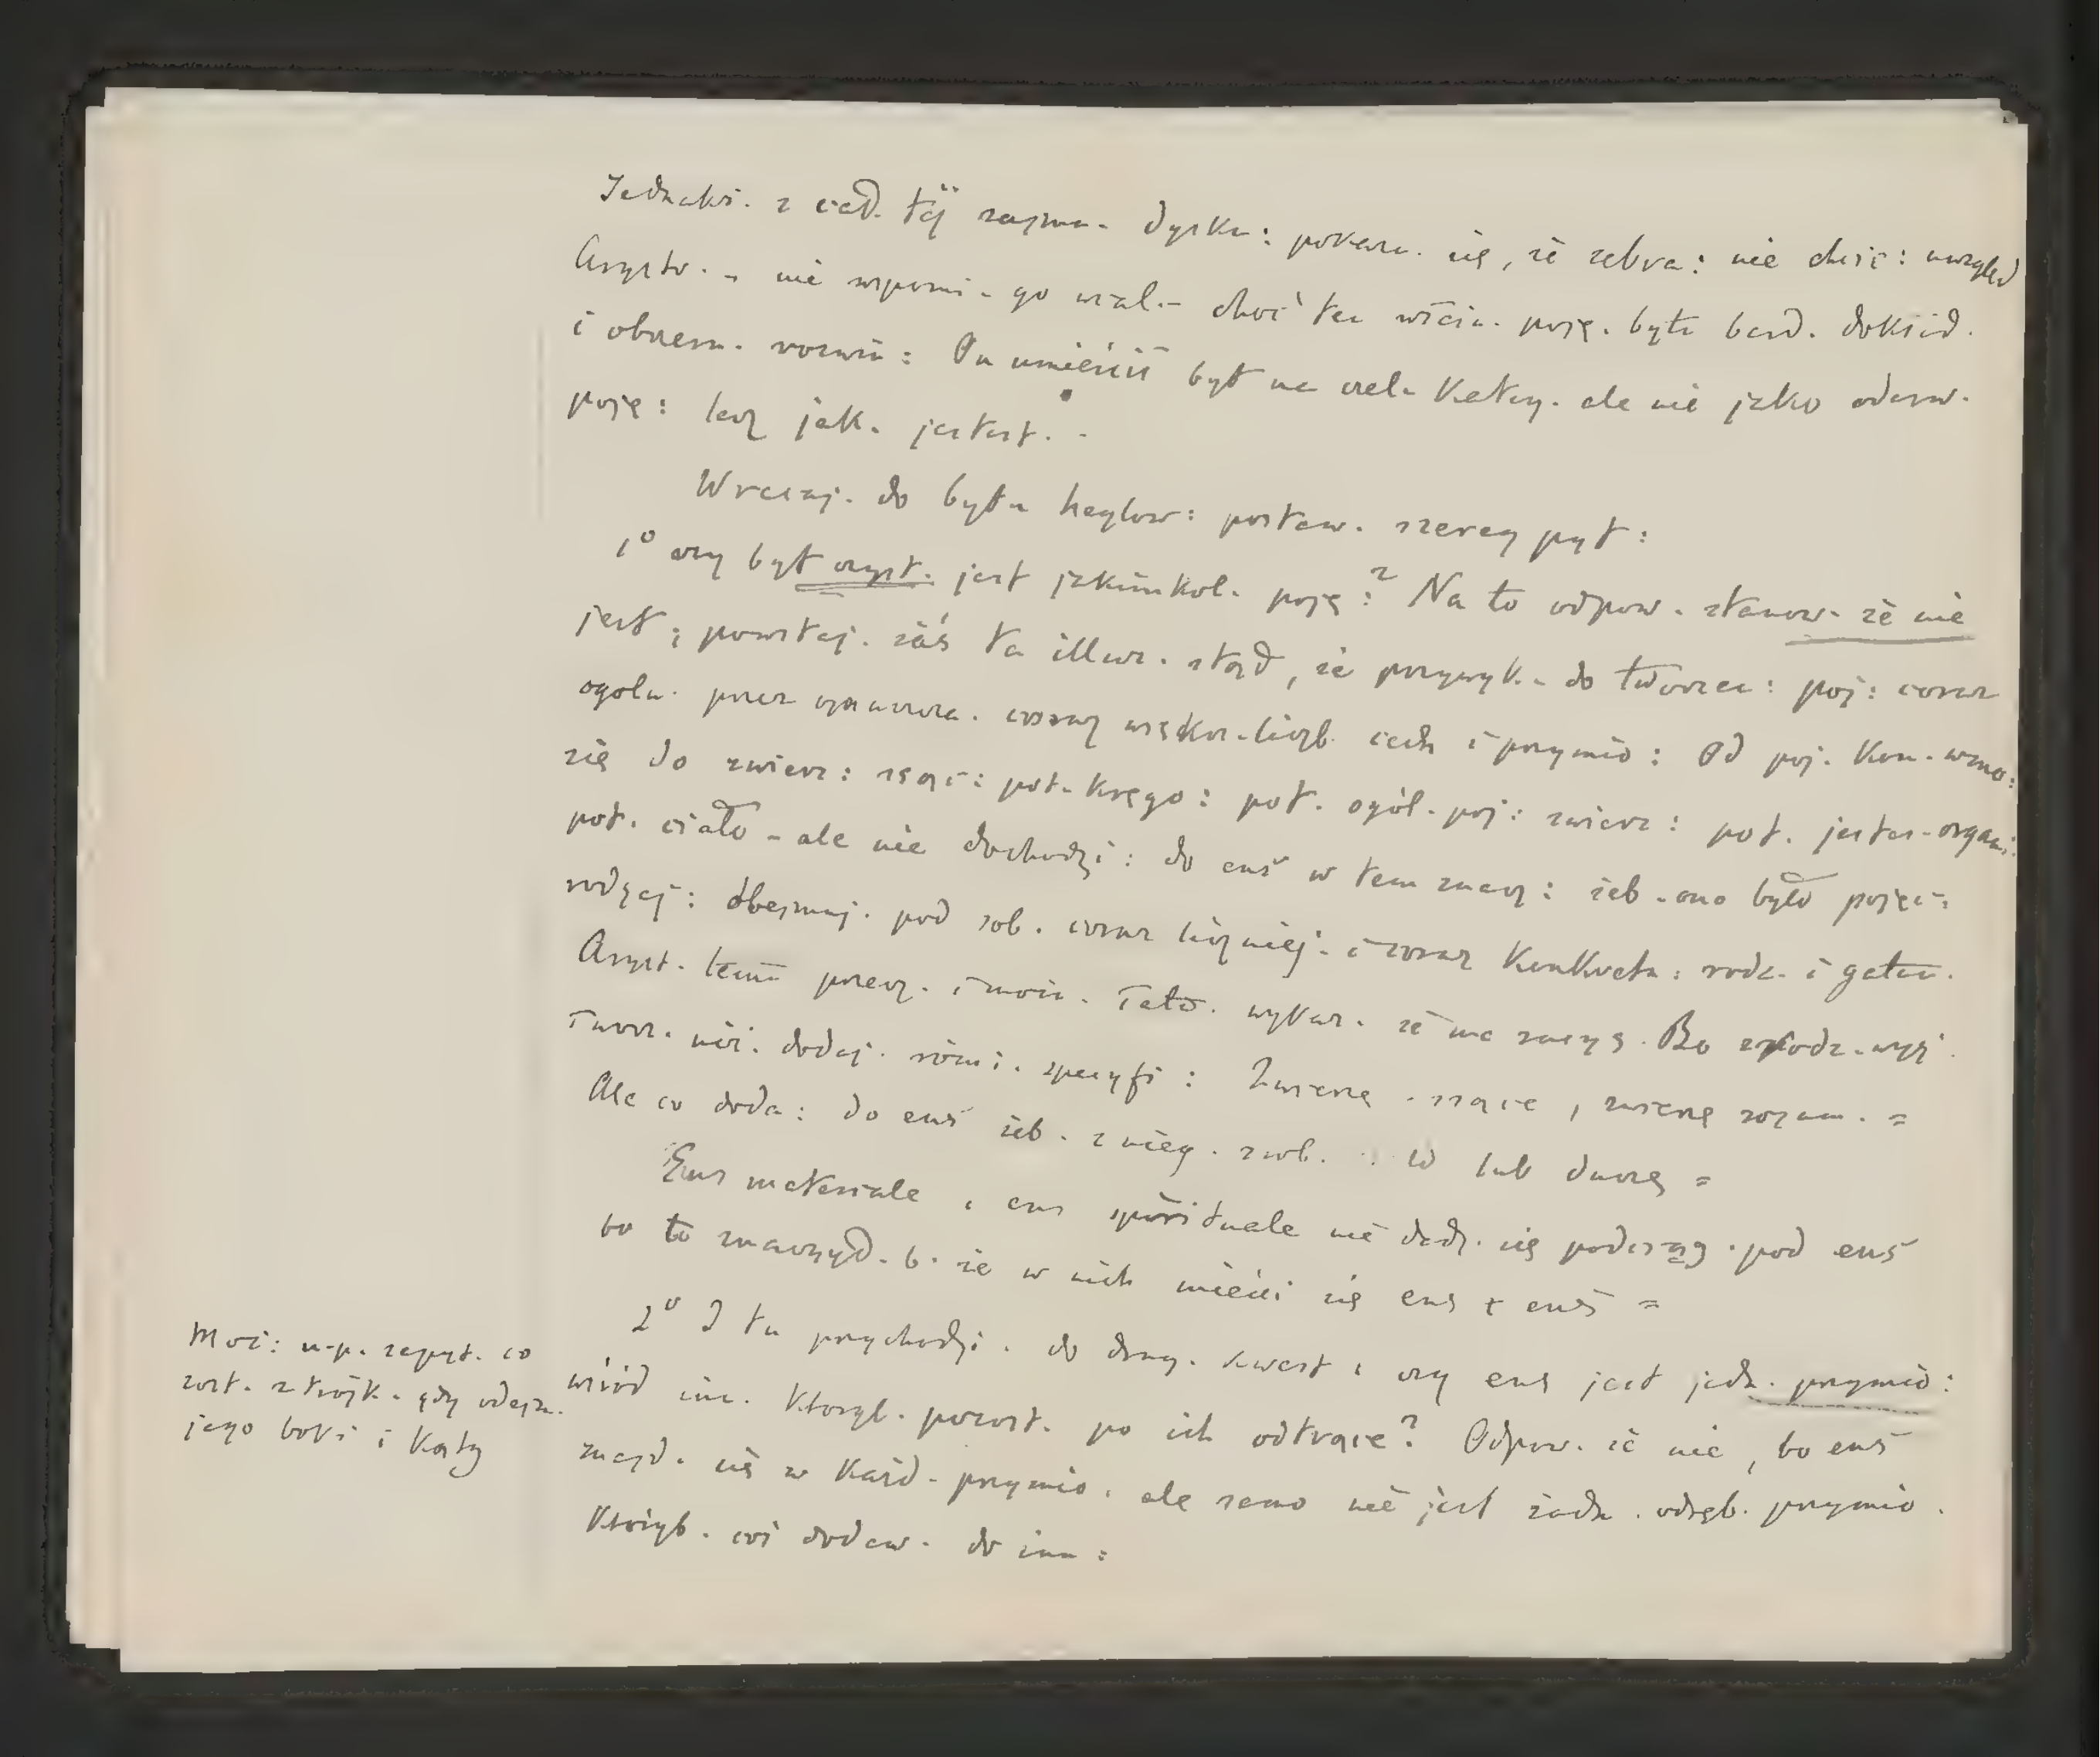 Jednakż. z cał. tej zajmu. dysku: pokazu. się, że zebra: nie chcie: uwzględ
Arysto. – nie wspomi – go wcal. – choć ten właśc. poję. był bard. dokład.
i obszern. rozwin: On umieścił byt na czele Kateg. ale nie jako oderw.
poję: lecz jak. jestest. .
Wracaj. do bytu heglow: postaw. szereg pyt:
1° czy byt czyst. jest jakimkol. poję:? Na to odpow. stanow. że nie
jest; powstaj. zaś ta illuz. stąd, że przywyk. – do tworzen: poj: coraz
ogóln. przez opuszcza. coraz więksr. liczb. cech i przymio: Od poj. kon. wzno:
się do zwierz: ssąc: pot. kręgo: pot. ogól. poj: zwierz: pot. jestes. organi:
pot. ciało – ale nie dochodzi: do ens w tem znacz: żeb. ono było pojęc.
rodzaj: obejmuj. pod sob. coraz liczniej. i coraz Konkretn: rodz. i gatun.
Aryst. temu przecz. i moż. łatw. wykaz. że ma racyę. Bo z rodz. wyż.
tworz. niż. dodaj. różni. specyfi: Zwierzę ssące, zwierzę rozum. =
Ale co doda: do ens żeb. z nieg. zrob. lub duszę =
Ens materiale, ens spirituale nie dadz. się podciąg. pod ens
bo to znaczył. b. że w nich mieści się ens + ens =
2° I tu przychodzi. do drug. kwest. czy ens jest jedn. przymio:
wśród inn. którzyb. pozost. po ich odtrące? Odpow. że nie, bo ens
znajd. się w każd. przymio. ale samo nie jest żadn. odręb. przymio.
któryb. coś dodaw. do inn:
Moż: n.p. zapyt. co
zost. z trójk. gdy odejm.
jego boki i kąty